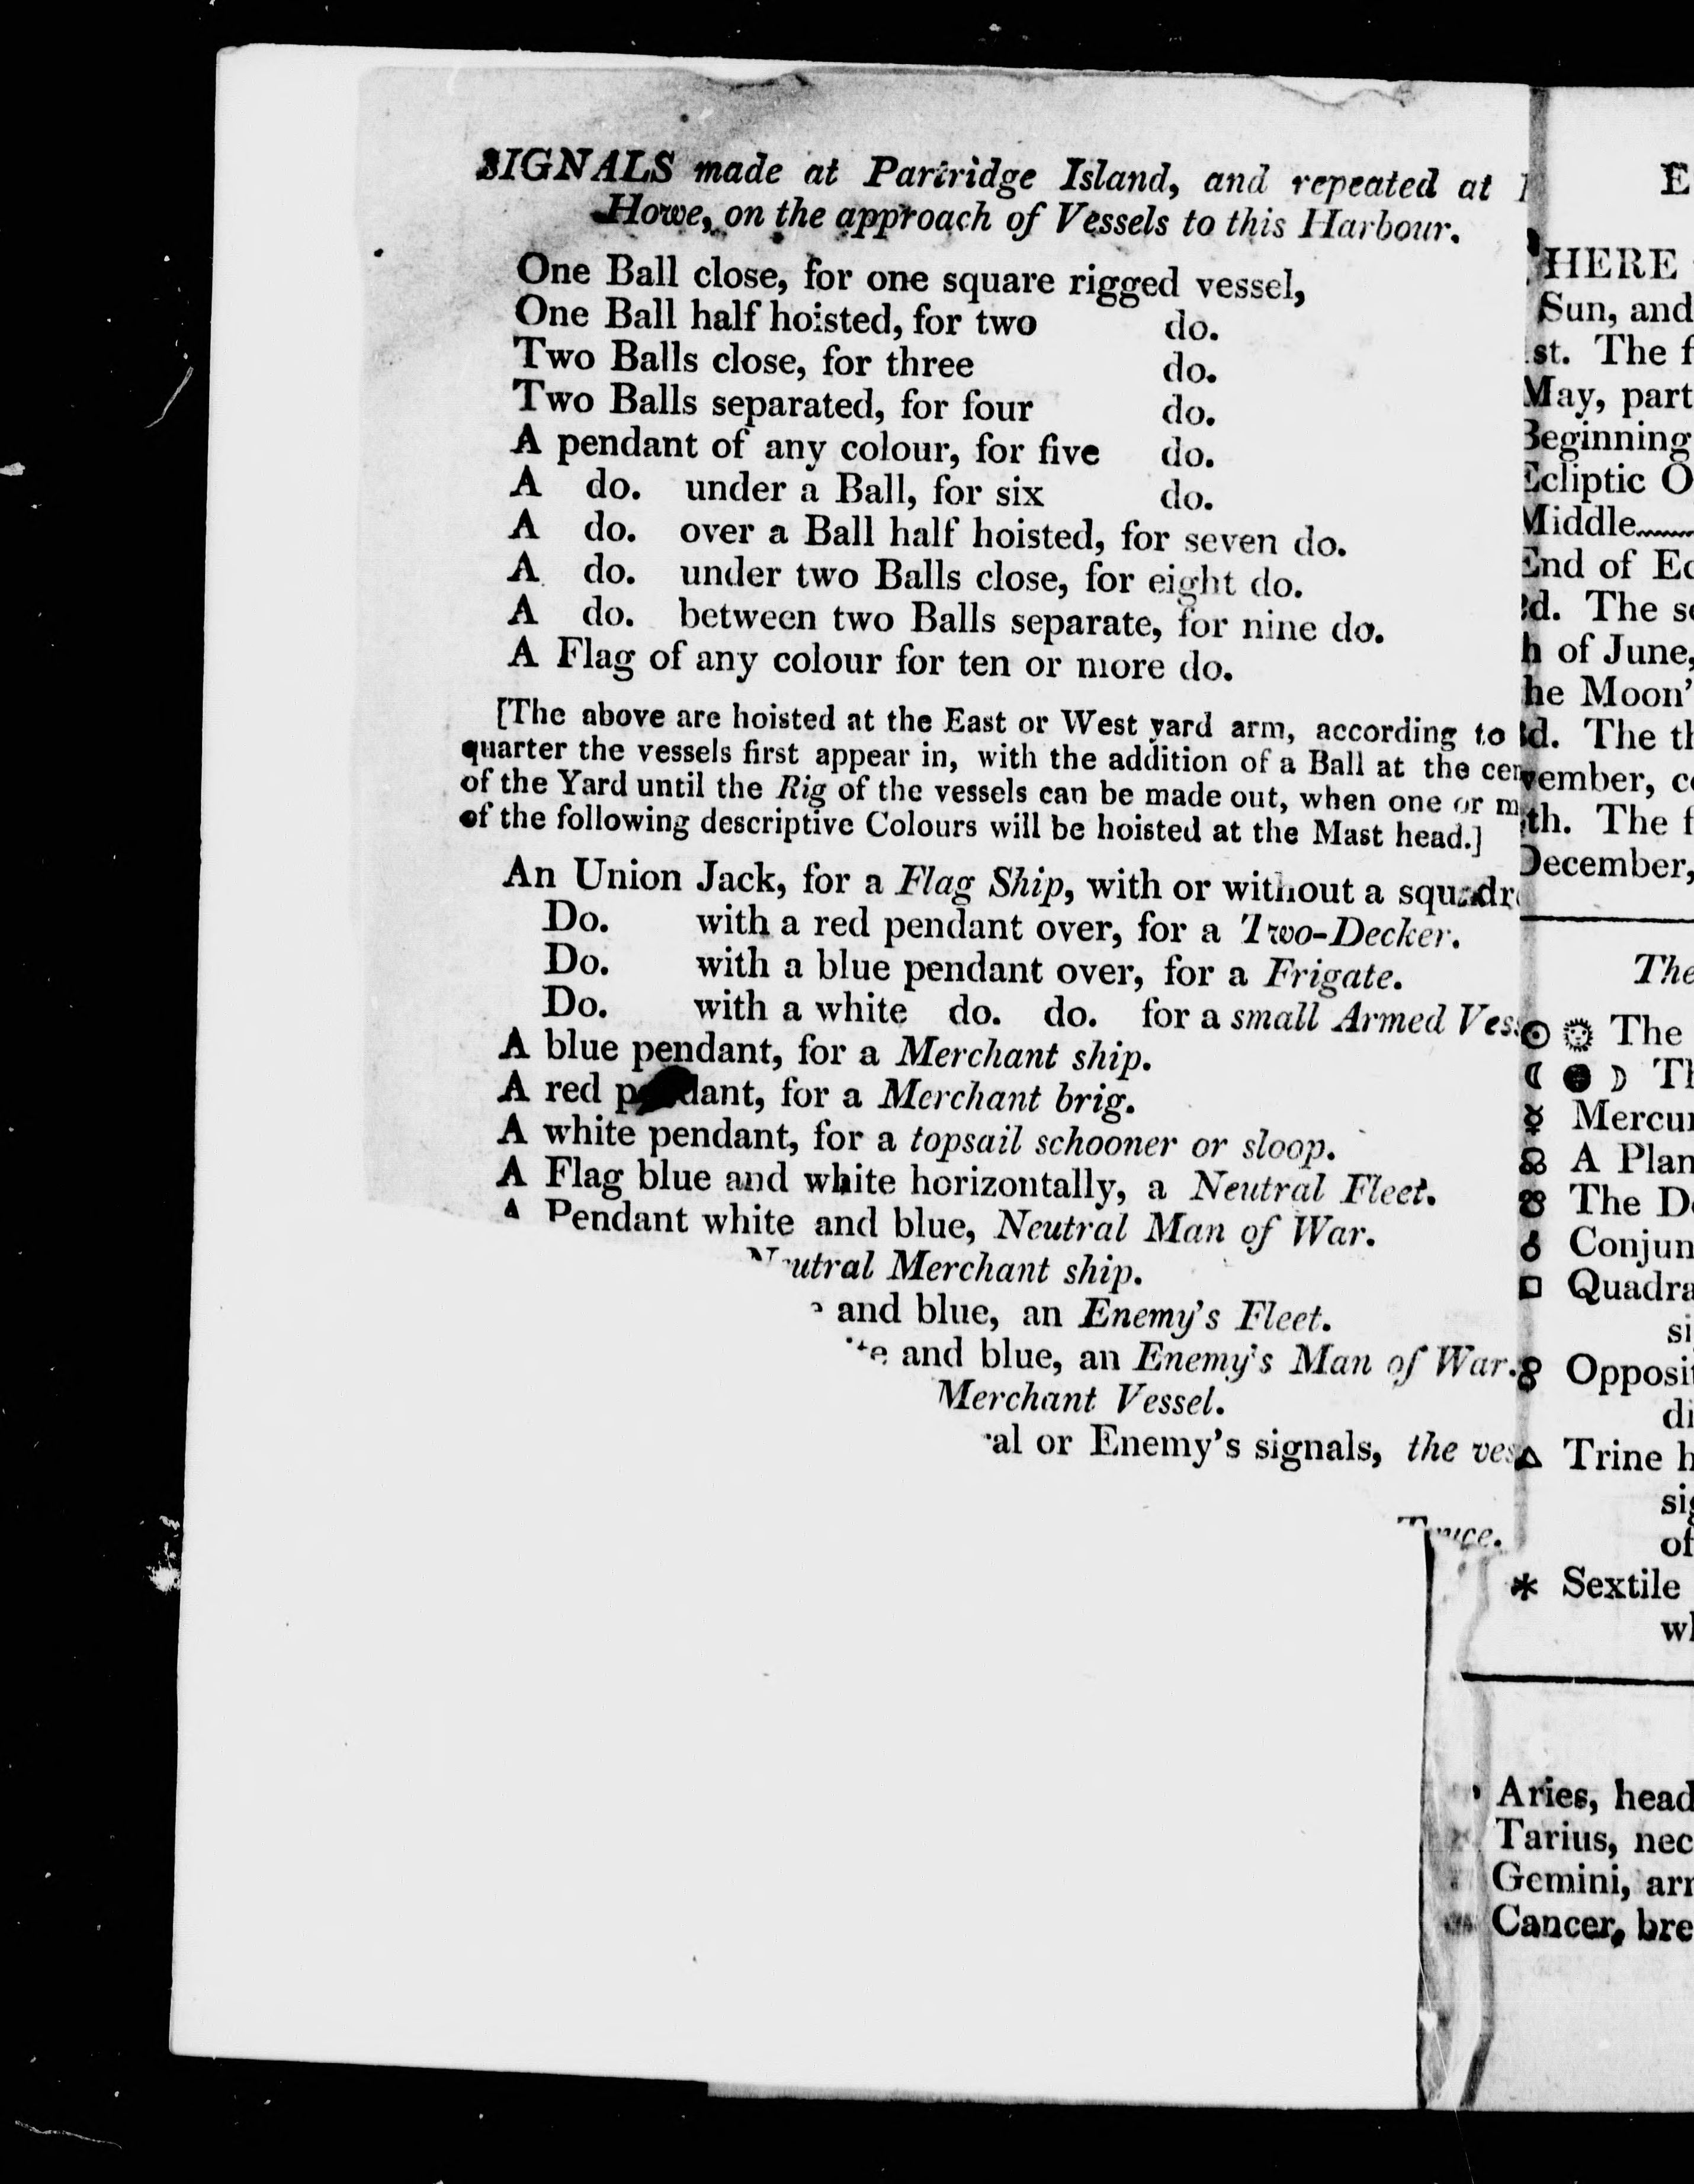 SIGNALS made at Partridge Island, and repeated at
Howe, on the approach of Vessels to this Harbour.
One Ball close, for one square rigged vessel,
One Ball half hoisted, for two do.
Two Balls close, for three do.
Two Balls separated, for four do.
A pendant of any colour, for five do.
A do. under a Ball, for six do.
A do. over a Ball half hoisted, for seven do.
A do. under two Balls close, for eight do.
A do. between two Balls separate, for nine do.
A Flag of any colour for ten or more do.
[The above are hoisted at the East or West yard arm, according to
quarter the vessels first appear in, with the addition of a Ball at the
of the Yard until the Rig of the vessels can be made out, when one or
of the following descriptive Colours will be hoisted at the Mast head.]
An Union Jack, for a Flag Ship, with or without a
Do. with a red pendant over, for a Two-Decker.
Do. with a blue pendant over, for a Frigate.
Do. with a white do. do. for a small Armed
A blue pendant, for a Merchant ship.
A red for a Merchant brig.
A white pendant, for a topsail schooner or sloop.
A Flag blue and white horizontally, a Neutral Fleet.
A Pendant white and blue, Neutral Man of War.
Merchant ship.
and blue, an Enemy's Fleet.
and blue, an Enemy's Man of War.
Merchant Vessel.
or Enemy's signals, the
E
HERE
Sun, and
st. The f
May, part
Beginning
Ecliptic O
Middle
End of Ec
d. The
h of June,
he Moon'
d. The th
vember,
th. The f
December,
The
☉ The
☾ ● ☽ Th
☿ Mercur
☊ A Plan
The D
☌ Conjun
□ Quadra
si
☍ Opposit
di
△ Trine h
sig
of
* Sextile
wh
Aries, head
Tarius, nec
Gemini, arm
Cancer, bre